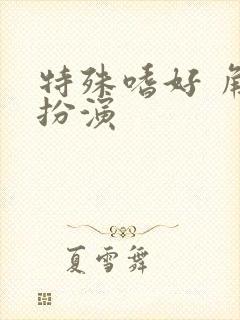 特殊嗜好 角
扮演
夏雪舞